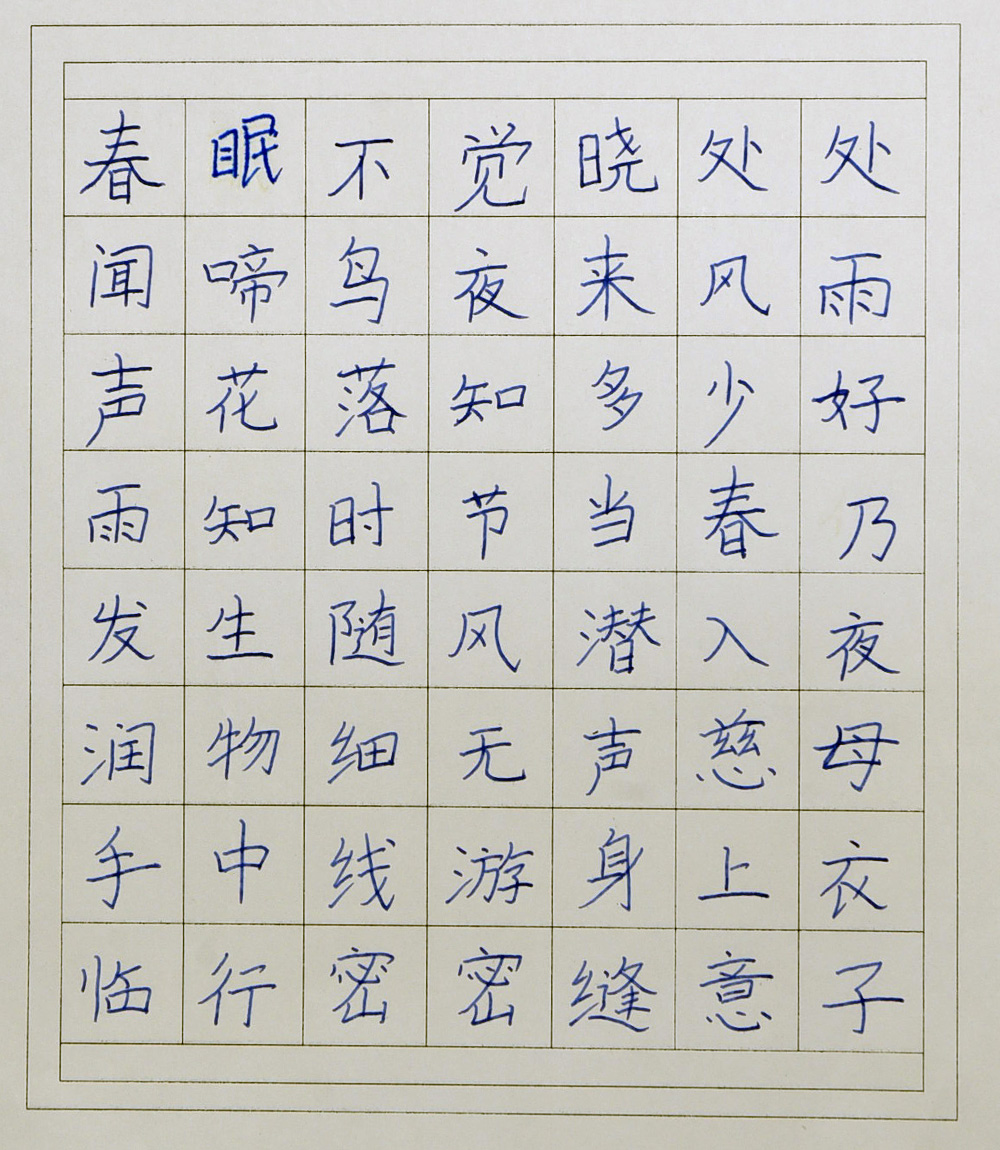 春眠不觉晓处处
闻啼鸟夜来风雨
声花落知多少好
雨知时节当春乃
发生随风潜入夜
润物细无声慈母
手中线游身上衣
临行密密缝意子